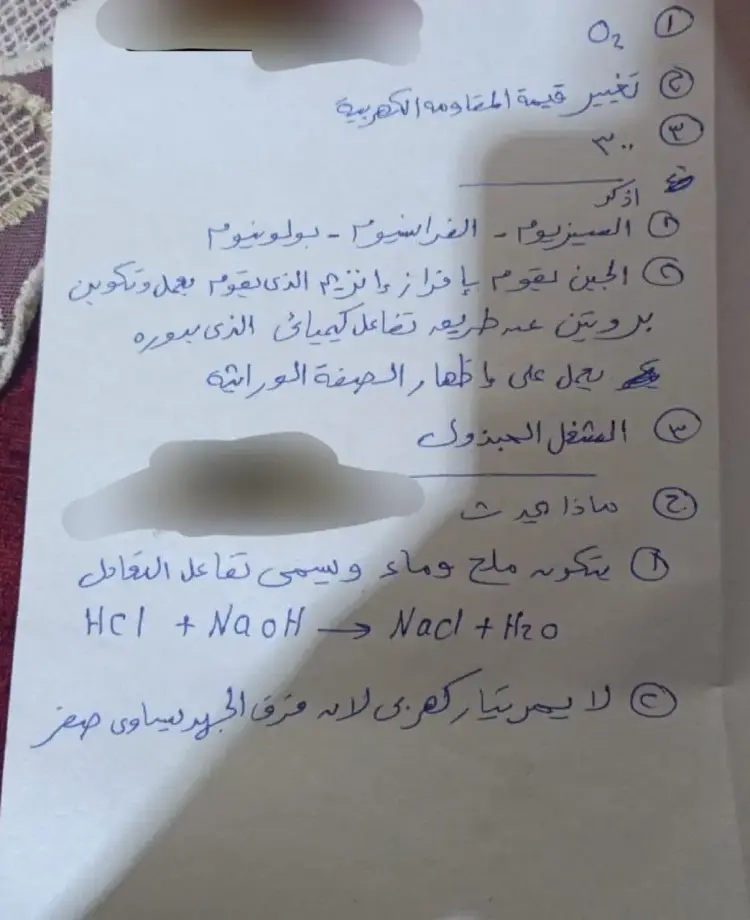 ① O2
② تغيير قيمة المقاومه الكهربية
③ ٣٠٠
اذكر
① السيزيوم - الفرانسيوم - بولونيوم
② الجين يقوم بإفراز إنزيم الذى يقوم بعمل وتكوين
بروتين عن طريق تفاعل كيميائى الذى بدوره
يعمل على إظهار الصفة الوراثيه
③ الشغل المبذول
ج ماذا يحدث
① يتكون ملح وماء ويسمى تفاعل التعادل
HCl + NaOH → Nacl + H2O
② لا يمر تيار كهربى لان فرق الجهد يساوى صفر